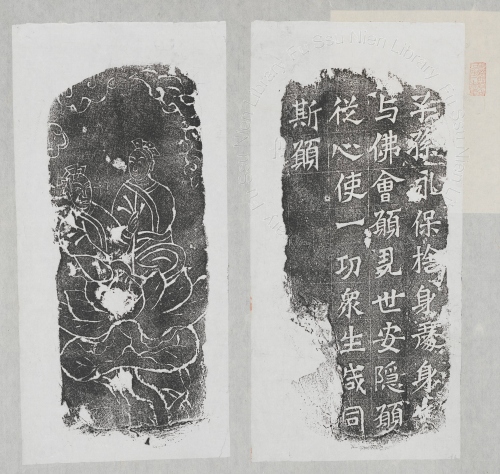 子孫永保捨身受身
与佛會願見世安隱願
從心使一切衆生咸同
斯願